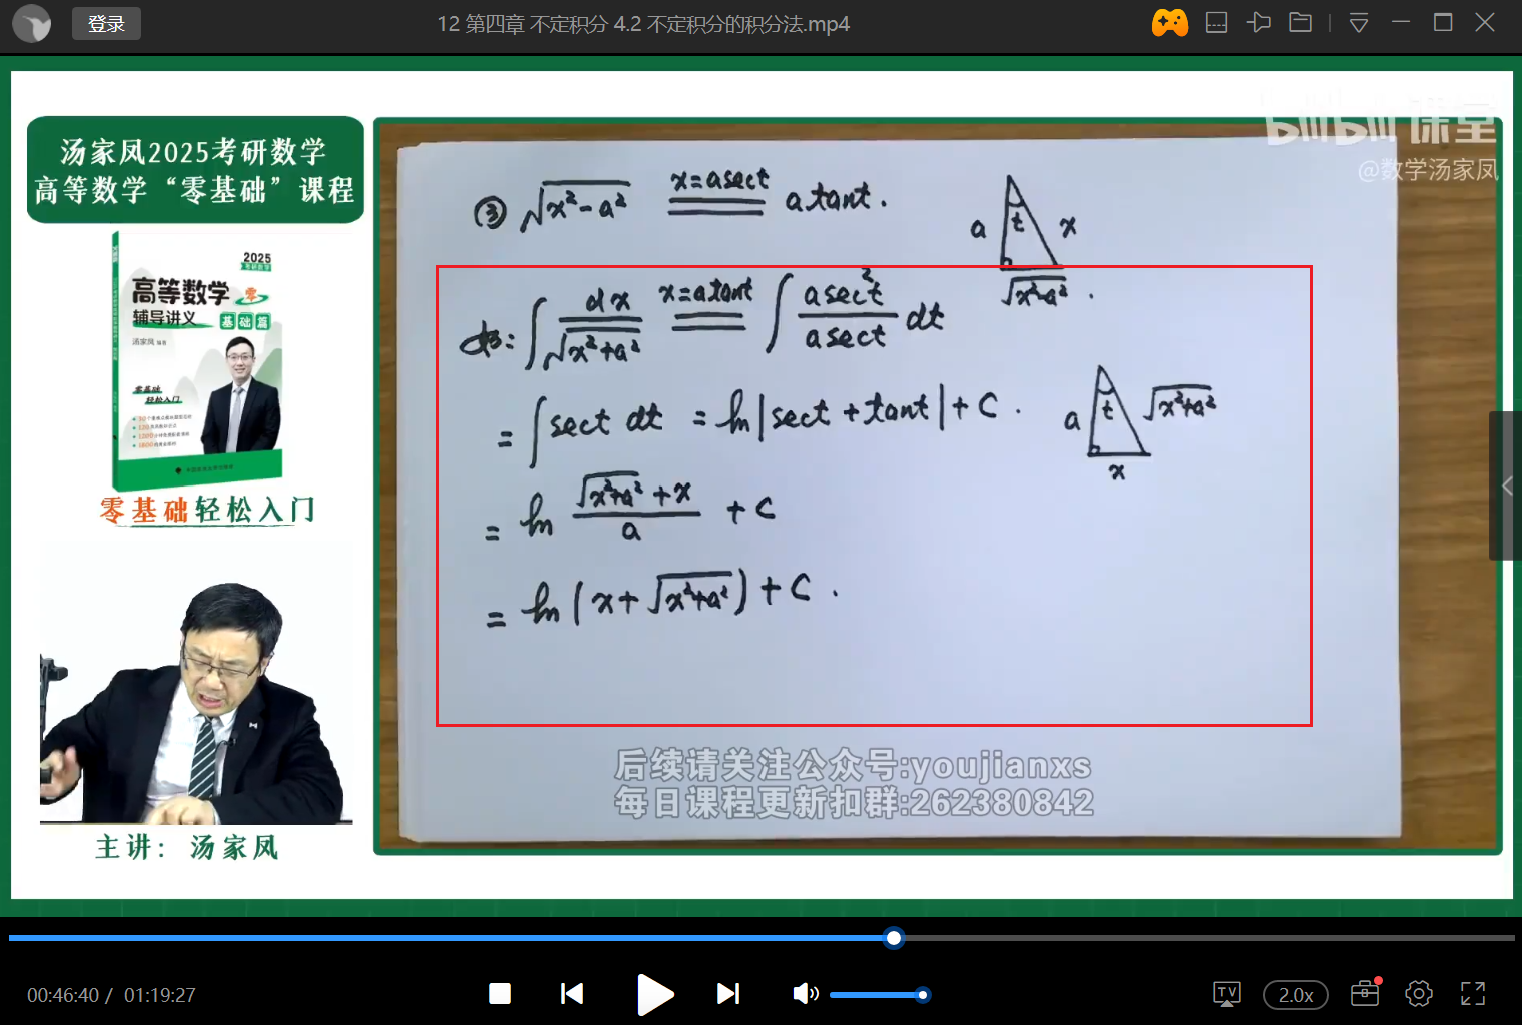 登录
12 第四章 不定积分 4.2 不定积分的积分法.mp4
汤家凤2025考研数学
高等数学“零基础”课程
bilibili课堂
@数学汤家凤
2025
高等数学 零
辅导讲义 基础篇
汤家凤 编著
零基础
轻松入门
零基础轻松入门
主讲：汤家凤
③ √(x²-a²) x=asect a tant.
a t x
√(x²-a²).
如: ∫ dx/√(x²+a²) x=atant ∫ asec²t/asect dt
= ∫ sect dt = ln|sect+tant|+C.
a t √(x²+a²)
x
= ln (√(x²+a²)+x)/a +C
= ln(x+√(x²+a²))+C.
后续请关注公众号:youjianxs
每日课程更新扣群:262380842
00:46:40 / 01:19:27
TV
2.0x